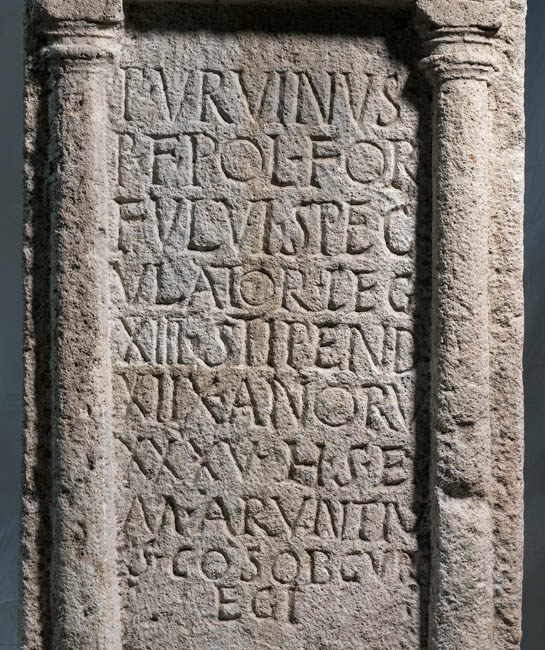 P·URVINUS
P·F·POL·FOR
FULVI·SPEC
ULATOR·LEG
XIII·STIPEND
XIIX·ANORV
XXXV·H·S·E
M·ARVNTIV
S·COSOBCUR
EGI